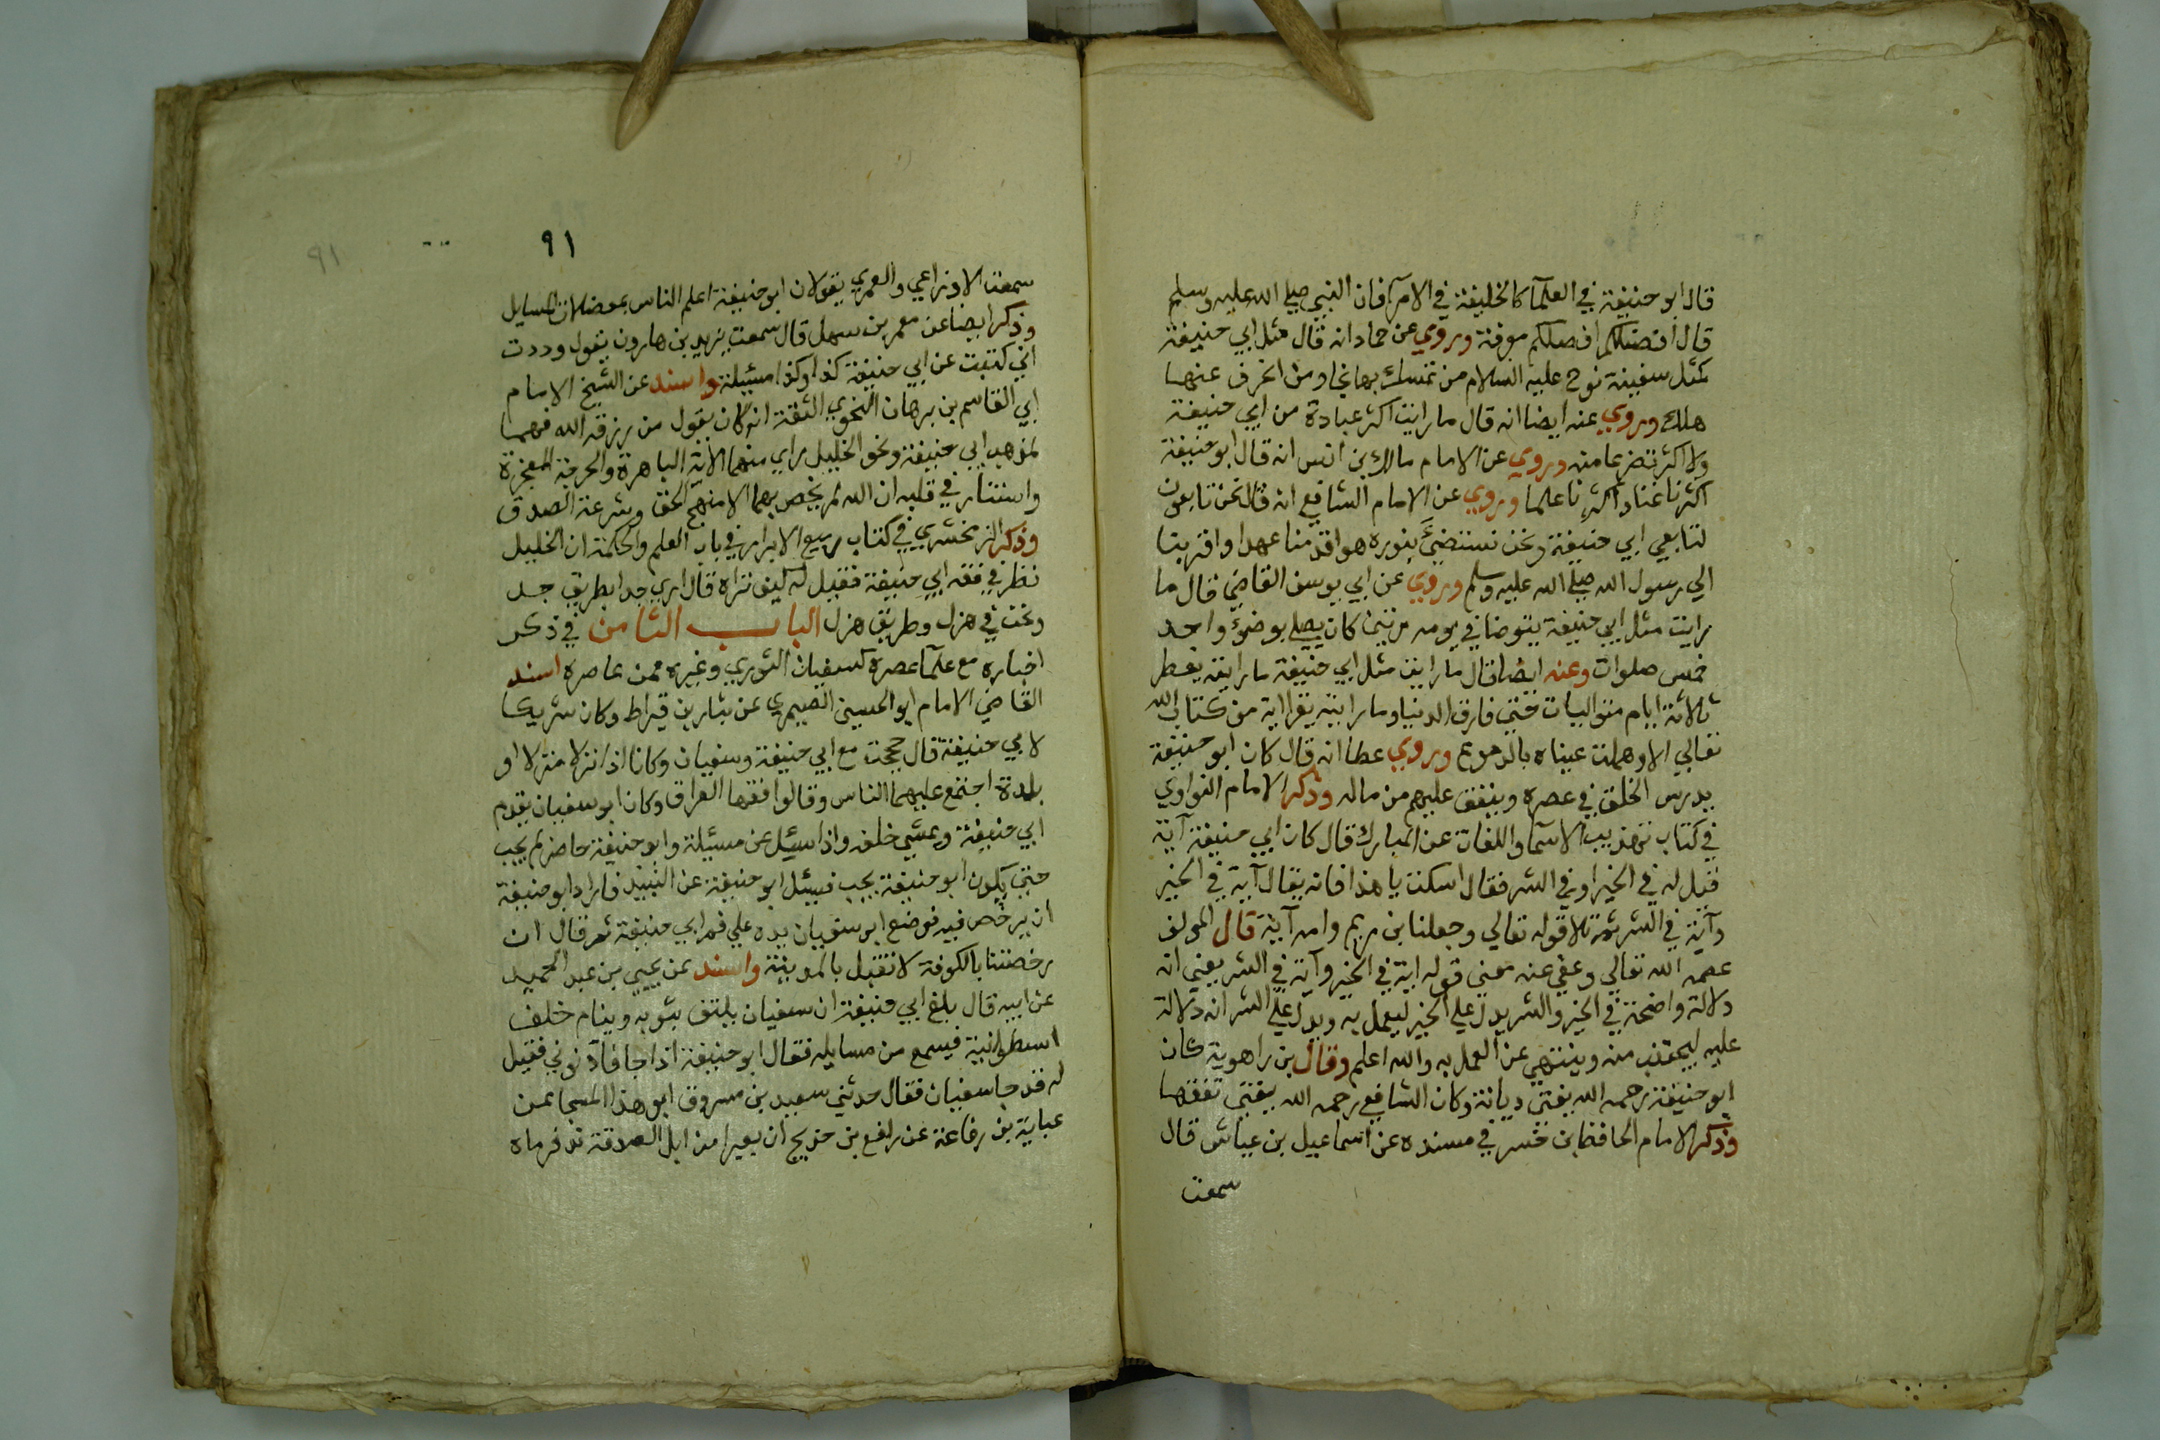 قال ابو حنيفة في العلمآ كالخليفة في الامرآ فان النبي صلي الله عليه وسلم
قال افضلكم افضلكم معرفة وروي عن حماد انه قال مثل ابي حنيفة
كمثل سفينة نوح عليه السلام من تمسك بها نجا ومن انحرف عنها
هلك وروي عنه ايضا انه قال ما رايت اكثر عبادة من ابي حنيفة
ولا اكثر تضرعا منه وروي عن الامام مالك بن انس انه قال ابو حنيفة
اكثرنا عنا واكثرنا علما وروي عن الامام الشافعي انه قال نحن تابعون
لتابعي ابي حنيفة ونحن نستضئ بنوره هو اقدمنا عهدا واقربنا
الي رسول الله صلي الله عليه وسلم وروي عن ابي يوسف القاضي قال ما
رايت مثل ابي حنيفة يتوضا في يومه مرتين كان يصلي بوضوء واحد
خمس صلوات وعنه ايضا قال ما رايت مثل ابي حنيفة ما رايته يفطر
ثلاثة ايام متواليات حتي فارق الدنيا وما رايته يقرا اية من كتاب الله
تعالي الا وهملت عيناه بالدموع وروي عطا انه قال كان ابو حنيفة
يدرس الخلق في عصره وينفق عليهم من ماله وذكر الامام النواوي
في كتاب تهذيب الاسمآ واللغات عن المبارك قال كان ابي حنيفة آية
فقيل له في الخير او في الشر فقال اسكت يا هذا فانه يقال آية في الخير
وآية في الشر ثم تلا قوله تعالي وجعلنا بن مريم وامه آية قال المولف
عصمه الله تعالي وعفي عنه معني قوله اية في الخير وآية في الشر يعني انه
دلالة واضحة في الخير والشر يدل علي الخير ليعمل به ويدل علي الشر انه دلالة
عليه ليجتنب منه وينتهي عن العمل به والله اعلم وقال بن راهوية كان
ابو حنيفة رحمه الله يفتي ديانة وكان الشافعي رحمه الله يفتي تفقها
وذكر الامام الحافظ بن خسر في مسنده عن اسماعيل بن عياش قال
سمعت
٩١
٩١
سمعت الاوزاعي والعمري يقولان ابو حنيفة اعلم الناس بمعضلات المسايل
وذكر ايضا عن معمر بن سهل قال سمعت يزيد بن هارون يقول وددت
اني كتبت عن ابي حنيفة كذا وكذا مسئيلة واسند عن الشيخ الامام
ابي القاسم بن برهان النحوي الثقة انه كان يقول من رزقه الله فهما
لمذهب ابي حنيفة ونحو الخليل راي منهما الاية الباهرة والحرجة المعجزة
واستنار في قلبه ان الله لم يخص بهما الا منهج الحق وشرعة الصدق
وذكر الزمخشري في كتاب ربيع الابرار في باب العلم والحكمة ان الخليل
نظر في فقه ابي حنيفة فقيل له كيف تراه قال اري جدا بطريق جد
ونحن في هزل وطريق هزل الباب الثامن في ذكر
اخباره مع علمآ عصره كسفيان الثوري وغيره ممن عاصره اسند
القاضي الامام ابو الحسين الصيمري عن بشار بن قيراط وكان شريكا
لابي حنيفة قال حججت مع ابي حنيفة وسفيان وكانا اذا نزلا منزلا او
بلدة اجتمع عليهما الناس وقالوا فقها العراق وكان ابو سفيان يقدم
ابي حنيفة ويمشي خلفه واذا سئيل عن مسئيلة وابو حنيفة حاضر لم يجب
حتي يكون ابو حنيفة يجب فسئيل ابو حنيفة عن النبيذ فاراد ابو حنيفة
ان يرخص فيه فوضع ابو سفيان يده علي فم ابي حنيفة ثم قال ان
رخصتنا بالكوفة لا تقبل بالمدينة واسند عن يحيي بن عبد الحميد
عن ابيه قال بلغ ابي حنيفة ان سفيان يلتف بثوبه وينام خلف
اسطوانية فيسمع من مسايله فقال ابو حنيفة اذا جا فآذنوني فقيل
له قد جا سفيان فقال حدثني سعيد بن مسروق ابو هذا المسجا عن
عباية بن رفاعة عن رافع بن خديج ان بعيرا من ابل الصدقة ند فرماه